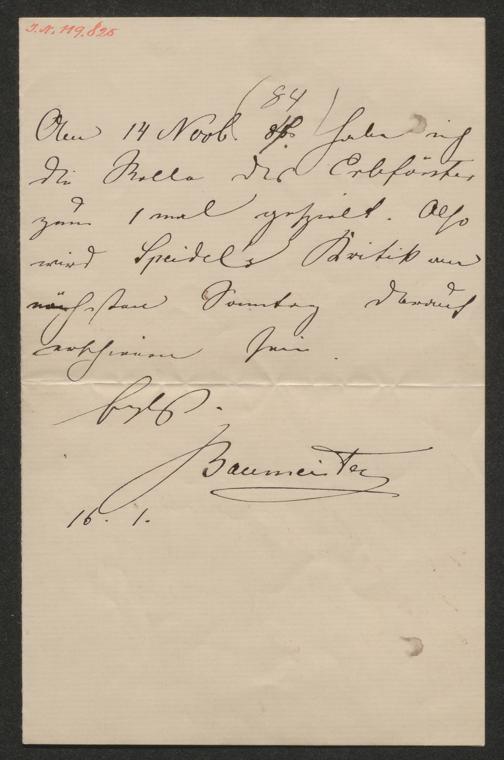 J.N. 119.825
(84)
Am 14 Novb. habe ich
die Rolle des Erbförster
zum 1 mal gespielt. Also
wird Speidel's Kritik am
nächsten Sonntag darauf
erschienen sein.
Baumeister
16. 1.